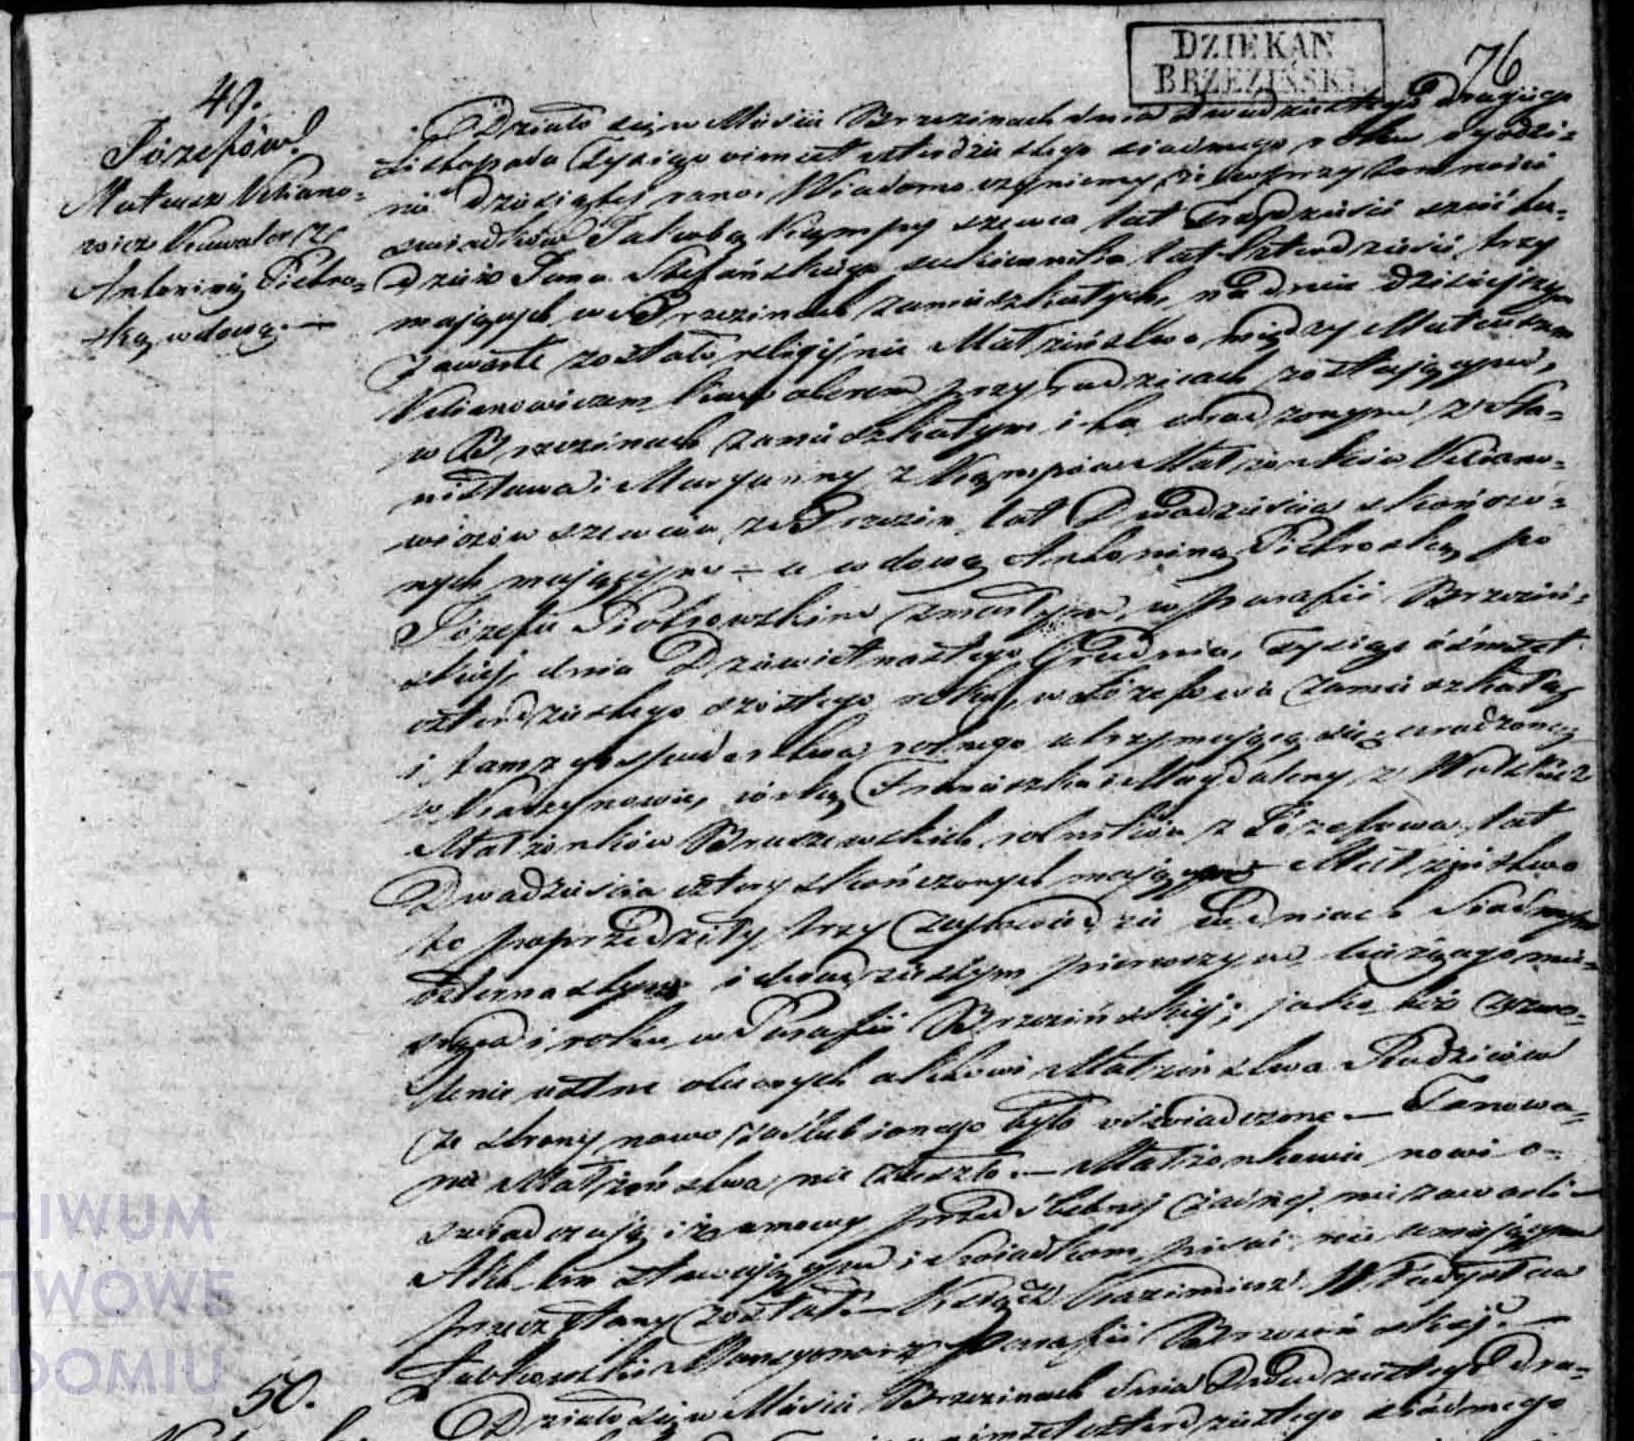 DZIEKAN
BRZEZIŃSKI
76
49.
Józefów
Mateusz Kcliano-
wicz Kawaler z
Antoniną Pietro-
ską wdową. —
Działo się w Mieście Brzezinach dnia Dwudziestego drugiego
Listopada Tysiąc ośmset czterdziestego siódmego roku o godzi-
nie dziesiątej rano. Wiadomo czynimy, iż w przytomności
świadków Jakuba Kępmpy szewca lat trzydzieści sześć tu-
dzież Jana Stefańskiego sukiennika lat czterdzieści trzy
mających w Brzezinach zamieszkałych, na dniu dzisiejszym
zawarte zostało religijnie Małżeństwo między Mateuszem
Kawalerem przy rodzicach zostającym,
w Brzezinach zamieszkałym i tu urodzonym z Sta-
nisława i Maryanny z Kępmpów Małżonków
wiczów szewców z Brzezin, lat Dwadzieścia skończo-
nych mającym — a wdową Antoniną Pietroską po
Józefie Piotrowskim zmarłym, w parafii Brzeziń-
skiej, dnia Dziewiętnastego Grudnia, Tysiąc ośmset
czterdziestego szóstego roku, w Józefowie zamieszkałą
i tam z gospodarstwa rolnego utrzymującą się, urodzoną
w córką Franciszka i Magdaleny z
Małżonków rolników z Józefowa, lat
Dwadzieścia cztery skończonych mającą — Małżeństwo
to poprzedziły trzy zapowiedzi w dniach Siódmym
czternastym i dwudziestym pierwszym bieżącego mie-
siąca i roku w Parafii Brzezińskiej; jako też zezwo-
lenie ustne obecnych aktowi Małżeństwa Rodziców
ze strony nowo zaślubionego było oświadczone. — Tamowa-
nie Małżeństwa nie zaszło. — Małżonkowie nowi o-
świadczają iż umowy przedślubnej żadnej nie zawarli —
Akt ten stawającym i Świadkom, pisać nie umiejącym
przeczytany został. — Ksiądz Kazimierz Władysław
Mansyonarz Parafii Brzezińskiej. —
50.
Działo się w Mieście Brzezinach dnia Dwudziestego dru-
czterdziestego siódmego
HIWUM
TWOWE
DOMIU